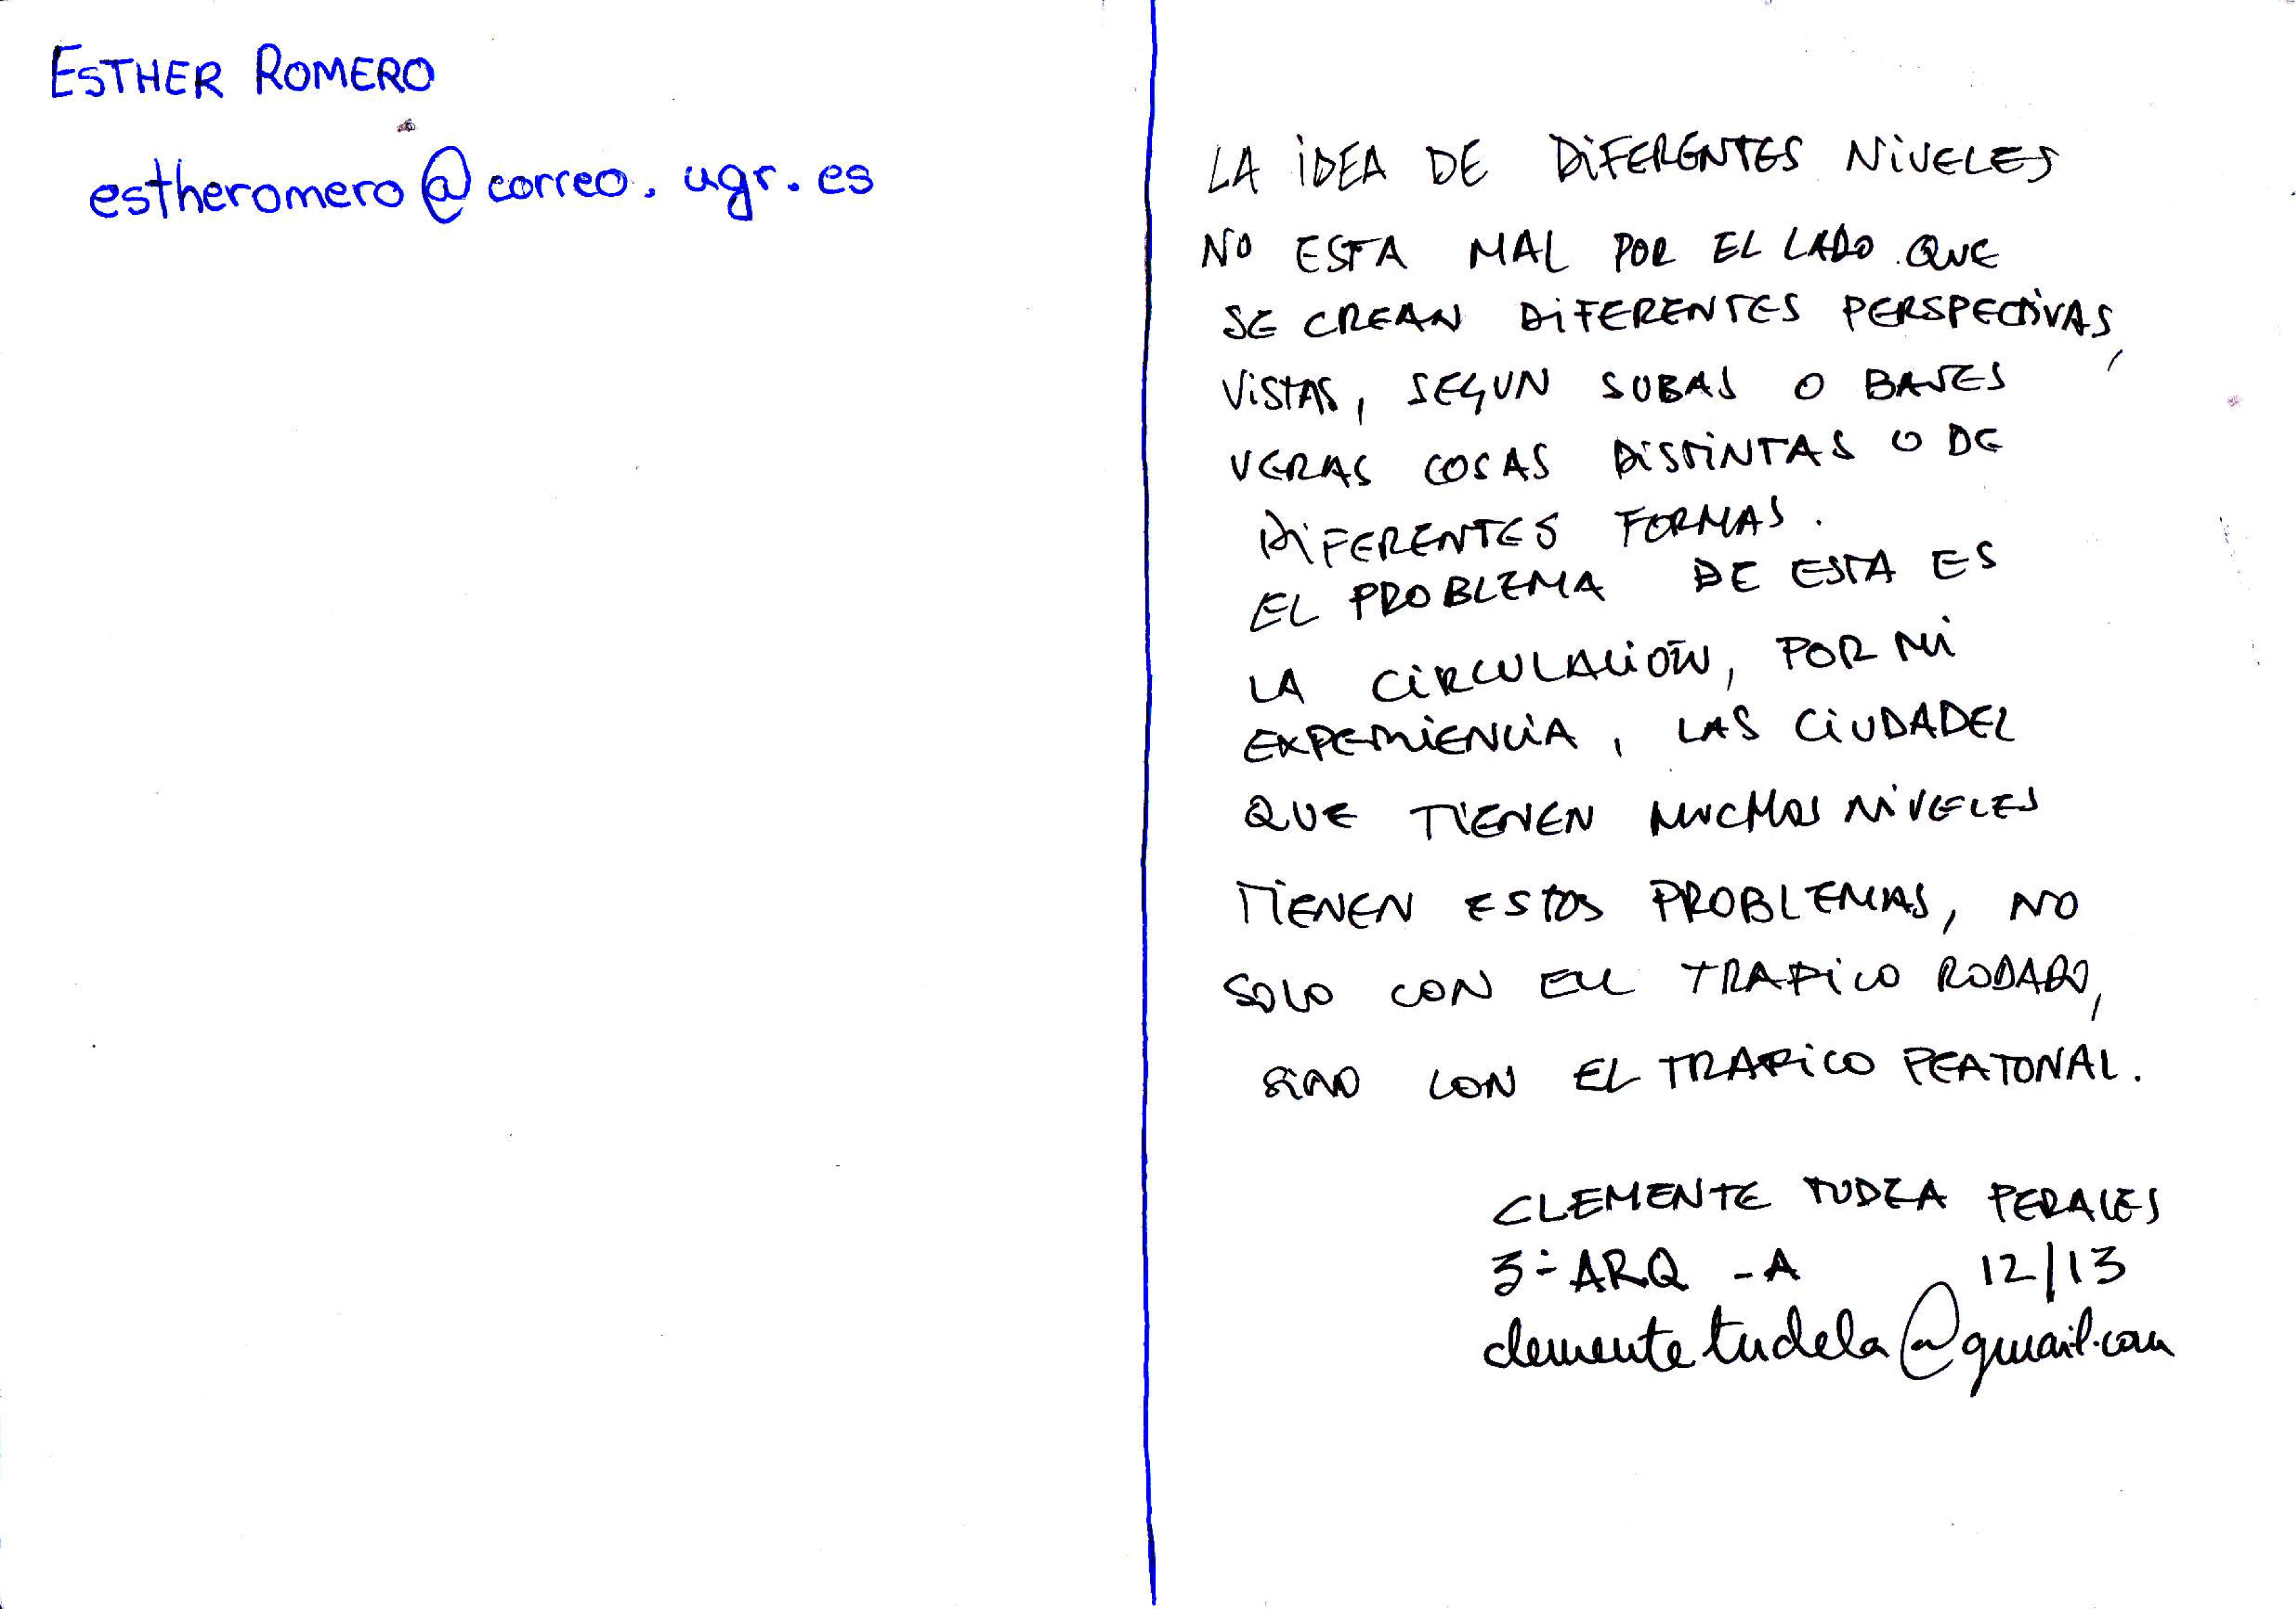 ESTHER ROMERO
estheromero@correo.ugr.es
LA IDEA DE DIFERENTES NIVELES
NO ESTA MAL POR EL LADO QUE
SE CREAN DIFERENTES PERSPECTIVAS,
VISTAS, SEGUN SUBAS O BAJES
VERAS COSAS DISTINTAS O DE
DIFERENTES FORMAS.
EL PROBLEMA DE ESTA ES
LA CIRCULACIÓN, POR MI
EXPERIENCIA, LAS CIUDADES
QUE TIENEN MUCHOS NIVELES
TIENEN ESTOS PROBLEMAS, NO
SOLO CON EL TRAFICO RODADO,
SINO CON EL TRAFICO PEATONAL.
CLEMENTE TUDELA PERALES
3º ARQ - A 12/13
clementetudela@gmail.com